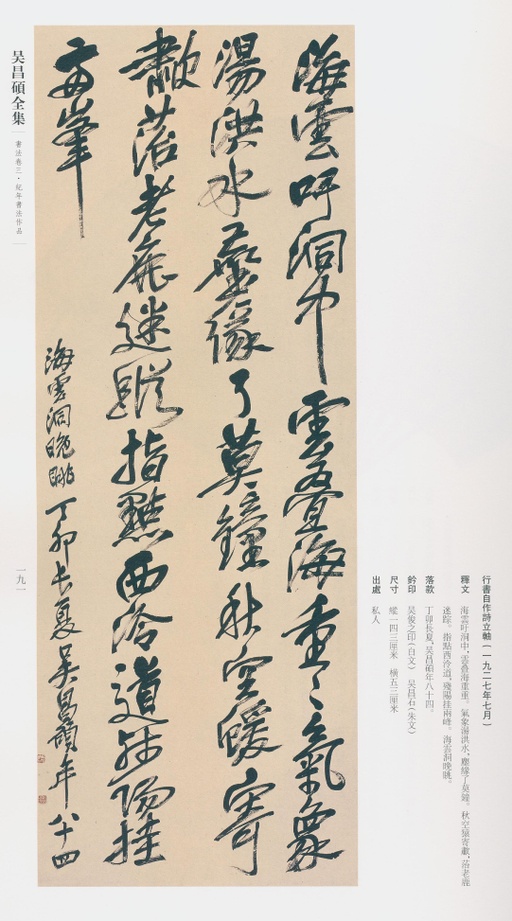 行書自作詩立軸(一九二七年七月)
釋文 海雲吁洞中,雲叠海重重。氣象湯洪水,塵緣了莫鐘。秋空猿寄歗,落老鹿
迷踪。指點西泠道,殘陽挂兩峰。海雲洞晚眺。
落款 丁卯長夏,吴昌碩年八十四。
鈐印 吴俊之印(白文) 吴昌石(朱文)
尺寸 縱一四三厘米 横五三厘米
出處 私人
海雲吁洞中雲叠海重〻氣象
湯洪水塵緣了莫鐘秋空猨寄
歗落老鹿迷蹤指點西泠道殘陽挂
兩峯
海雲洞晚眺 丁卯長夏吴昌碩年八十四
吴昌碩全集 書法卷三·紀年書法作品
一九一